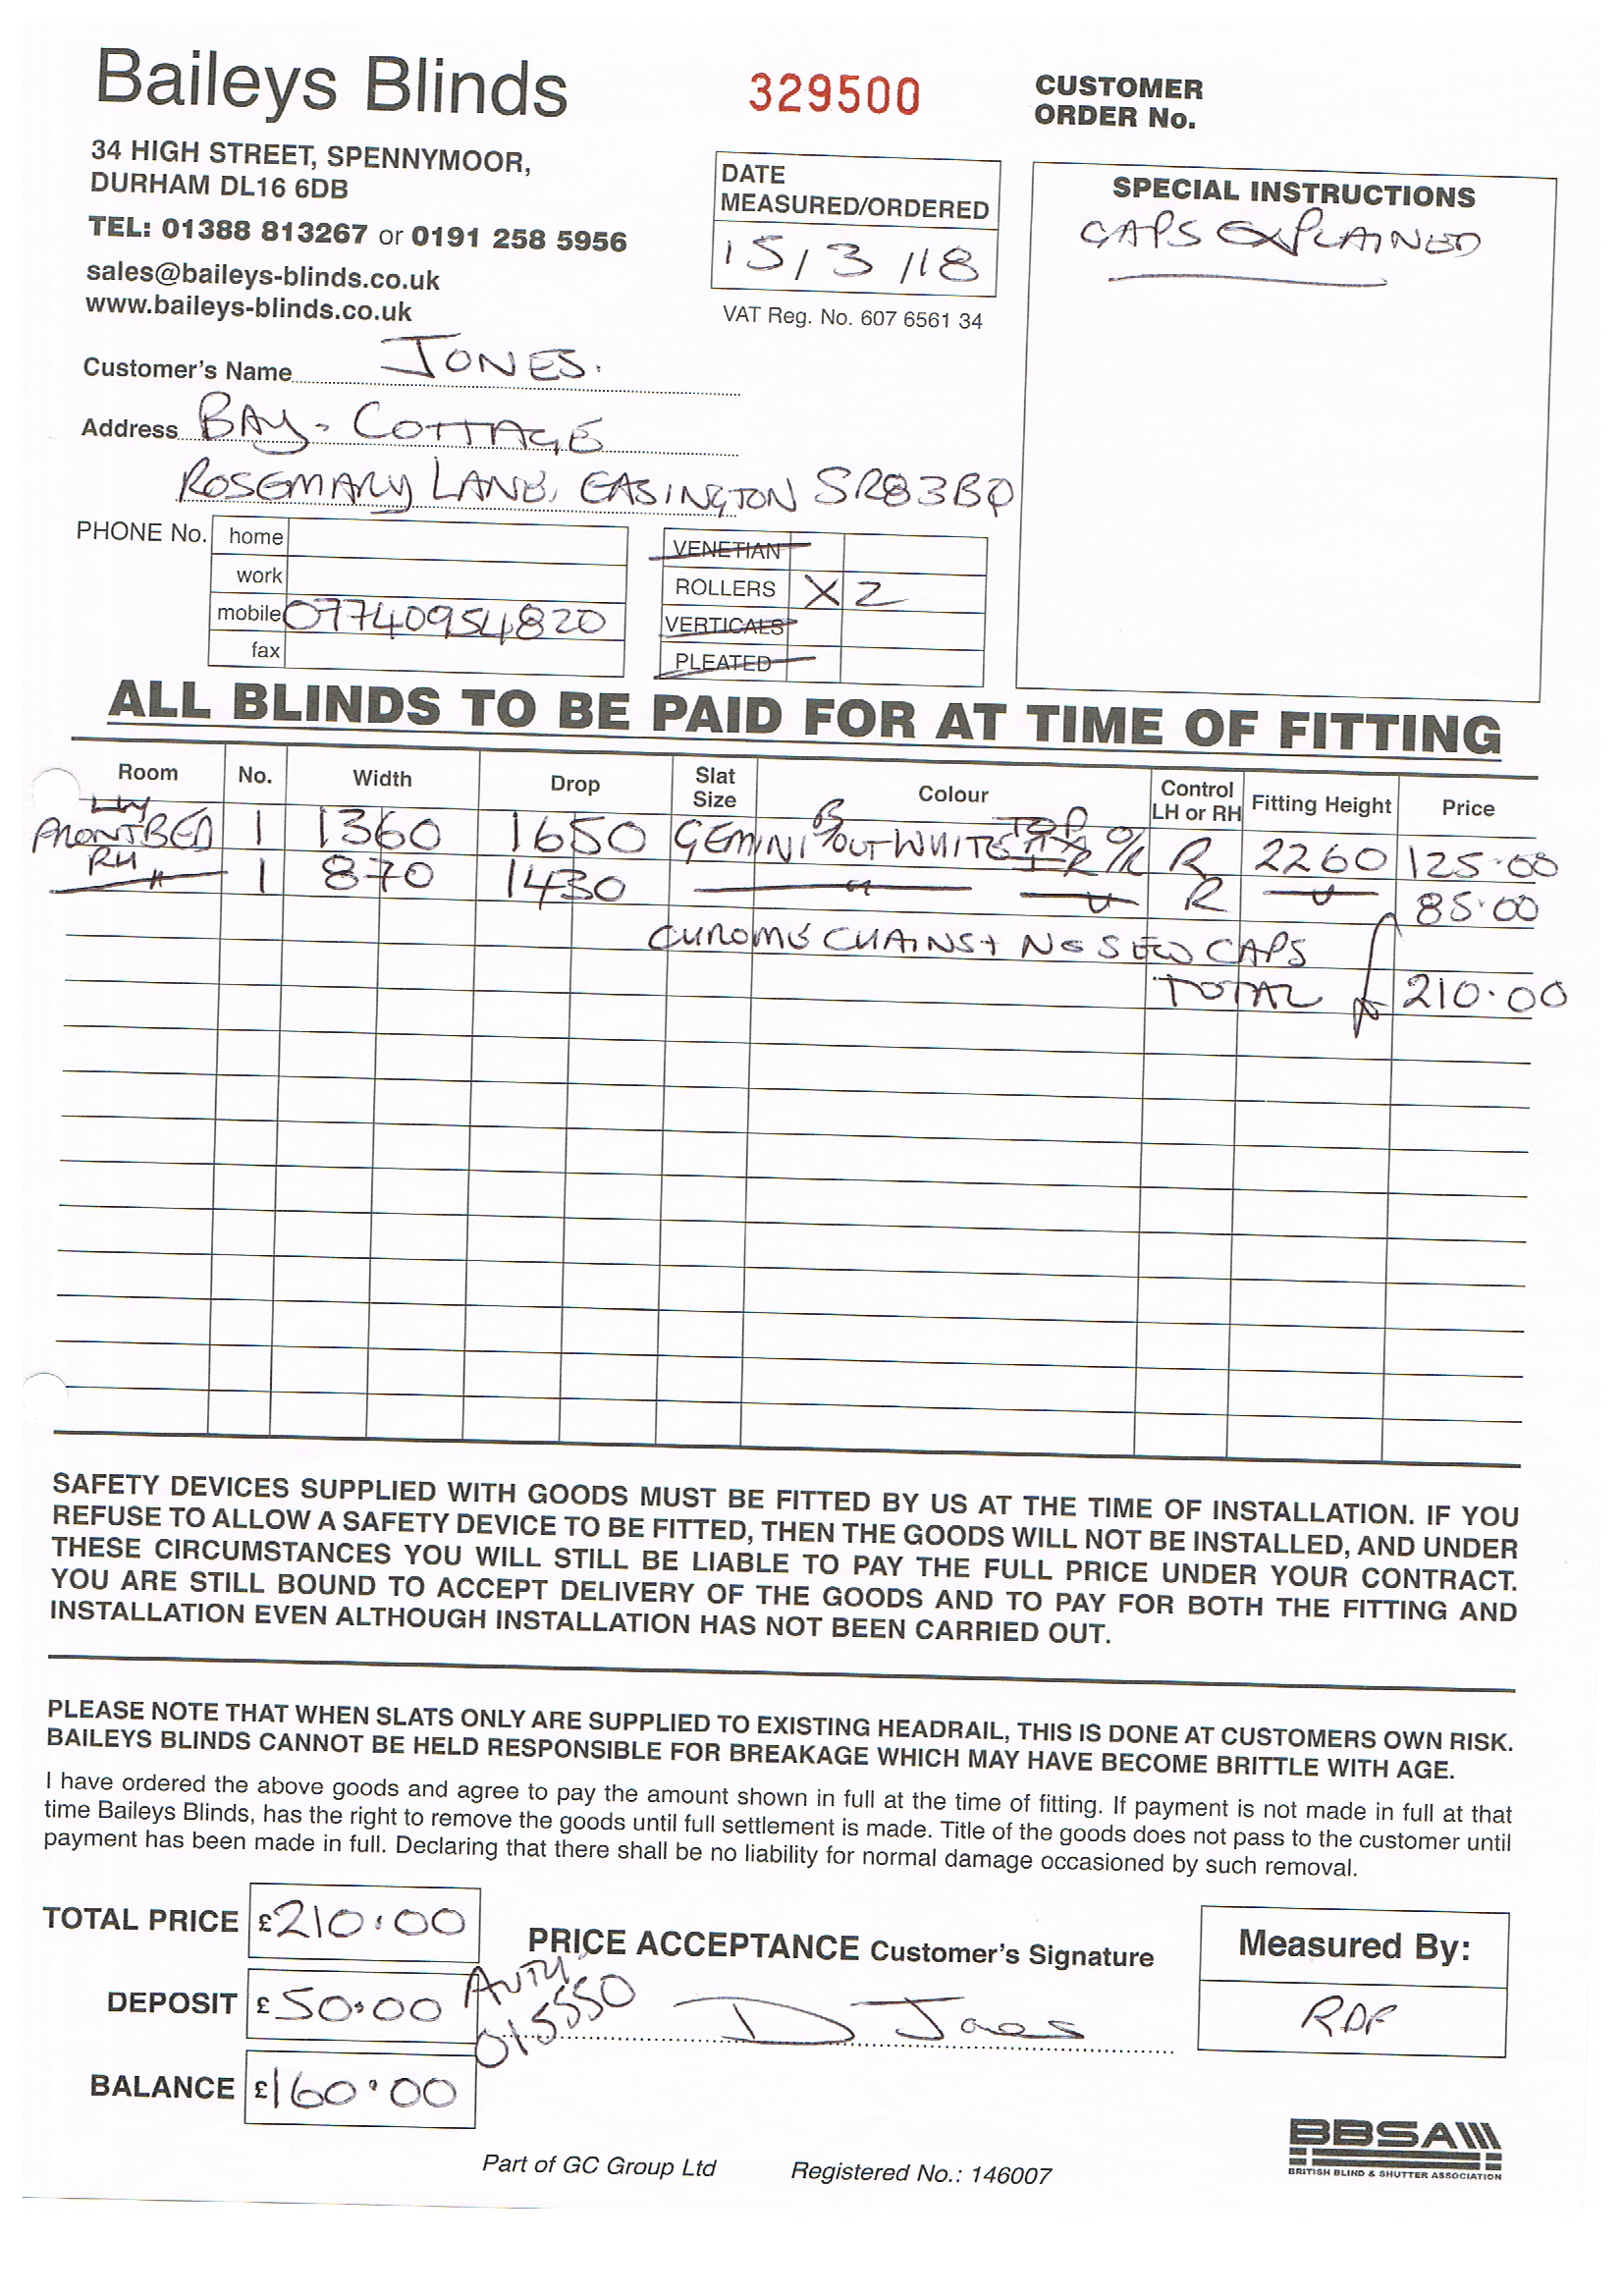 Baileys Blinds
329500
CUSTOMER
ORDER No.
34 HIGH STREET, SPENNYMOOR,
DURHAM DL16 6DB
TEL: 01388 813267 or 0191 258 5956
sales@baileys-blinds.co.uk
www.baileys-blinds.co.uk
DATE
MEASURED/ORDERED
15/3/18
VAT Reg. No. 607 6561 34
SPECIAL INSTRUCTIONS
GAPS EXPLAINED
Customer's Name JONES.
Address BAY. COTTAGE
ROSEMARY LANE, EASINGTON SR83BQ
PHONE No. home
work
mobile 07740954820
fax
VENETIAN
ROLLERS X2
VERTICALS
PLEATED
ALL BLINDS TO BE PAID FOR AT TIME OF FITTING
Room No. Width Drop Slat Size Colour Control LH or RH Fitting Height Price
FRONT BED 1 1360 1650 GEMINI B/OUT WHITE TOP O/R R 2260 125.00
RH " 1 870 1430 " " R " 85.00
CHROME CHAINS + NO SEW CAPS
TOTAL 210.00
SAFETY DEVICES SUPPLIED WITH GOODS MUST BE FITTED BY US AT THE TIME OF INSTALLATION. IF YOU
REFUSE TO ALLOW A SAFETY DEVICE TO BE FITTED, THEN THE GOODS WILL NOT BE INSTALLED, AND UNDER
THESE CIRCUMSTANCES YOU WILL STILL BE LIABLE TO PAY THE FULL PRICE UNDER YOUR CONTRACT.
YOU ARE STILL BOUND TO ACCEPT DELIVERY OF THE GOODS AND TO PAY FOR BOTH THE FITTING AND
INSTALLATION EVEN ALTHOUGH INSTALLATION HAS NOT BEEN CARRIED OUT.
PLEASE NOTE THAT WHEN SLATS ONLY ARE SUPPLIED TO EXISTING HEADRAIL, THIS IS DONE AT CUSTOMERS OWN RISK.
BAILEYS BLINDS CANNOT BE HELD RESPONSIBLE FOR BREAKAGE WHICH MAY HAVE BECOME BRITTLE WITH AGE.
I have ordered the above goods and agree to pay the amount shown in full at the time of fitting. If payment is not made in full at that
time Baileys Blinds, has the right to remove the goods until full settlement is made. Title of the goods does not pass to the customer until
payment has been made in full. Declaring that there shall be no liability for normal damage occasioned by such removal.
TOTAL PRICE £210.00
DEPOSIT £50.00
BALANCE £160.00
AUTH
015550
PRICE ACCEPTANCE Customer's Signature
D Jones
Measured By:
RDF
Part of GC Group Ltd
Registered No.: 146007
BBSA
BRITISH BLIND & SHUTTER ASSOCIATION